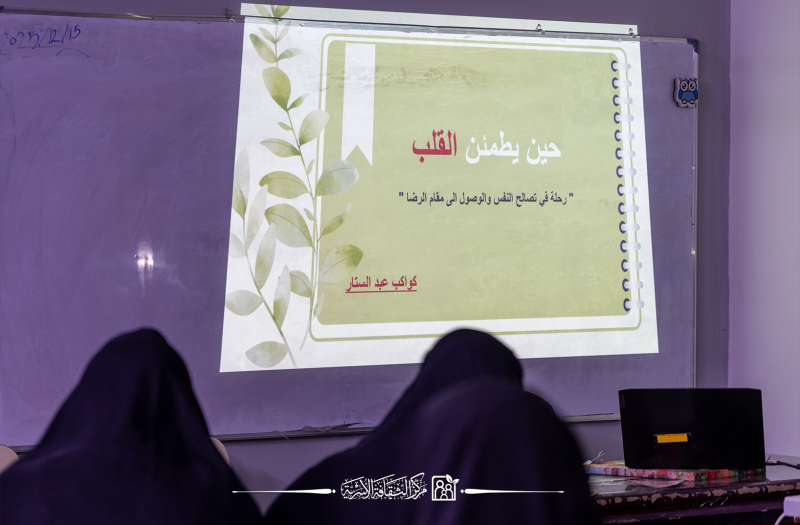 2025/12/15
حين يطمئن القلب
" رحلة في تصالح النفس والوصول الى مقام الرضا "
كواكب عبد الستار
مركز الثقافة الأسرية